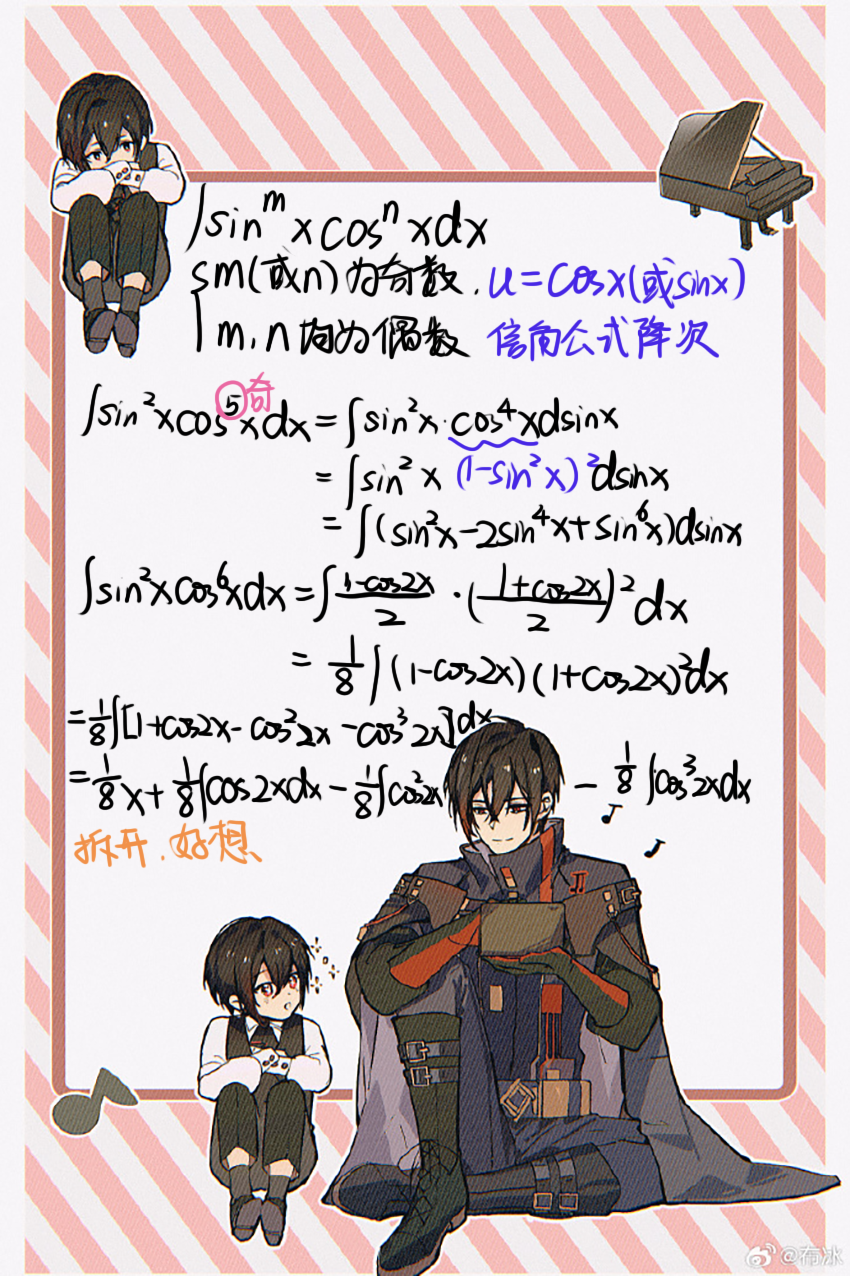 ∫sin^m x cos^n x dx
{ m(或n)为奇数. u=cosx(或sinx)
m,n均为偶数 倍角公式降次
奇
∫sin²x cos⁵x dx = ∫sin²x·cos⁴x dsinx
= ∫sin²x (1-sin²x)² dsinx
= ∫(sin²x-2sin⁴x+sin⁶x)dsinx
∫sin²x cos⁶x dx = ∫(1-cos2x)/2 · ((1+cos2x)/2)² dx
= 1/8 ∫(1-cos2x)(1+cos2x)²dx
= 1/8∫[1+cos2x-cos²2x-cos³2x]dx
= 1/8 x + 1/8∫cos2xdx - 1/8∫cos²2x - 1/8∫cos³2xdx
拆开.好想
@布冰